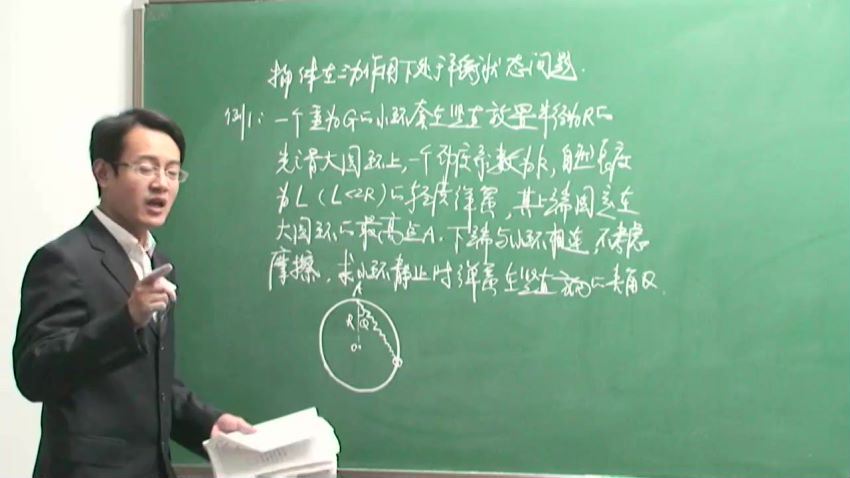 物体在三力作用下处于平衡状态问题.
例1: 一个重为G的小环套在竖直放置半径为R的
光滑大圆环上,一个劲度系数为k,自然长度
为L(L<2R)的轻质弹簧,其上端固定在
大圆环的最高点A.下端与小环相连,不考虑
摩擦,求小环静止时弹簧与竖直方向的夹角Q.
A
R Q
O